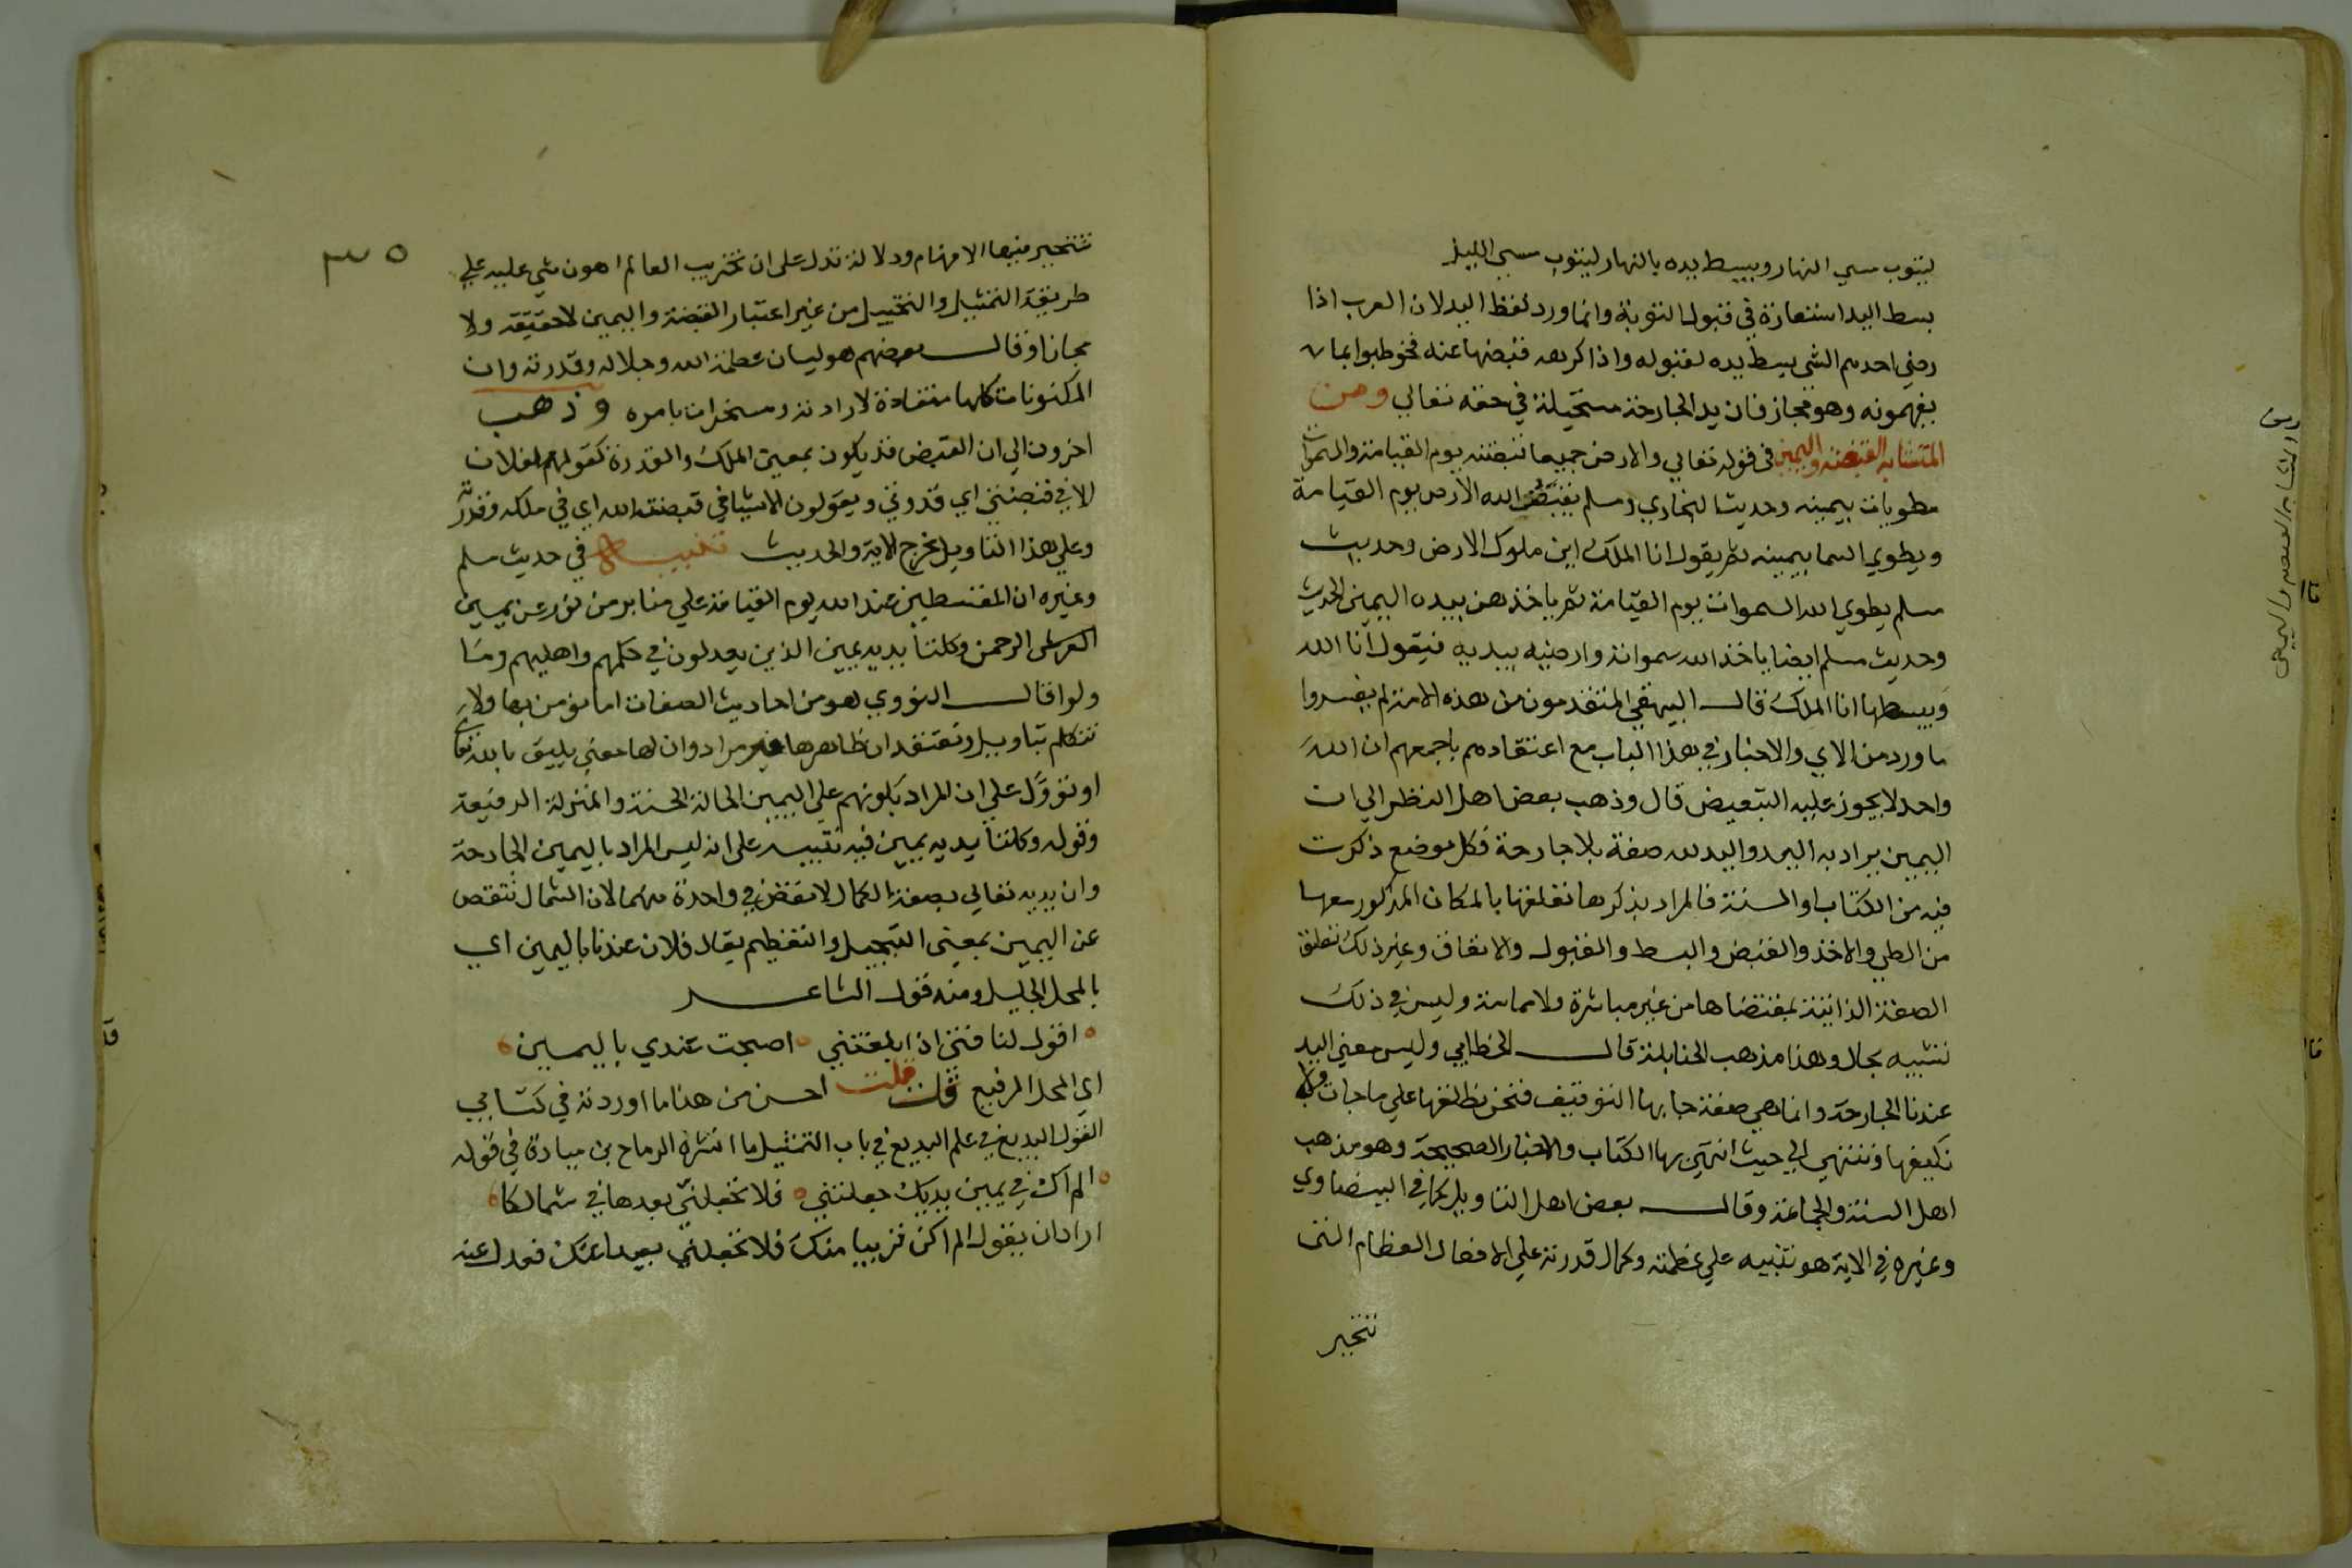 ليتوب مسي النهار ويبسط يده بالنهار ليتوب مسي الليل
بسط اليد استعارة في قبول التوبة وانما ورد لفظ اليد لان العرب اذا
رضي احدهم الشي بسط يده لقبوله واذا كرهه قبضها عنه فخوطبوا بما
يفهمونه وهو مجاز فان يد الجارحة مستحيلة في حقه تعالي ومن
المتشابه القبضة واليمين في قوله تعالي والارض جميعا قبضته يوم القيامة والسموات
مطويات بيمينه وحديث البخاري ومسلم يقبض الله الارض يوم القيامة
ويطوي السما بيمينه ثم يقول انا الملك اين ملوك الارض وحديث
مسلم يطوي الله السموات يوم القيامة ثم ياخذهن بيده اليمين الحديث
وحديث مسلم ايضا ياخذ الله سمواته وارضيه بيديه فيقول انا الله
ويبسطها انا الملك قال البيهقي المتقدمون من هذه الامة لم يفسروا
ما ورد من الاي والاخبار في هذا الباب مع اعتقادهم باجمعهم ان الله
واحد لا يجوز عليه التبعيض قال وذهب بعض اهل النظر الي ان
اليمين يراد به اليد واليد لله صفة بلا جارحة فكل موضع ذكرت
فيه من الكتاب او السنة فالمراد بذكرها تعلقها بالمكان المذكور معها
من الطي والاخذ والقبض والبسط والقبول والانفاق وغير ذلك تعلق
الصفة الذاتية بمقتضاها من غير مباشرة ولا مماسة وليس في ذلك
تشبيه بحال وهذا مذهب الحنابلة قال الخطابي وليس معني اليد
عندنا الجارحة وانما هي صفة جا بها التوقيف فنحن نطلقها علي ما جات ولا
نكيفها وننتهي الي حيث انتهي بها الكتاب والاخبار الصحيحة وهو مذهب
اهل السنة والجماعة وقال بعض اهل التاويل كما في البيضاوي
وغيره في الاية هو تنبيه علي عظمته وكمال قدرته علي الافعال العظام التي
تتحير
المتشابه القبضة واليمين
٣٥
تتحير فيها الافهام ودلالة تدل علي ان تخريب العالم اهون شي عليه علي
طريقة التمثيل والتخييل من غير اعتبار القبضة واليمين لا حقيقة ولا
مجازا وقال بعضهم هو لبيان عظمة الله وجلاله وقدرته وان
المكنونات كلها منقادة لارادته ومسخرات بامره وذهب
اخرون الي ان القبض قد يكون بمعني الملك والقدرة كقولهم لفلان
الا في قبضتي اي قدرتي ويقولون الاشيا في قبضة الله اي في ملكه وقدرته
وعلي هذا التاويل تخرج الاية والحديث تنبيه في حديث مسلم
وغيره ان المقسطين عند الله يوم القيامة علي منابر من نور عن يمين
العرش الرحمن وكلتا يديه يمين الذين يعدلون في حكمهم واهليهم وما
ولوا قال النووي هو من احاديث الصفات اما نؤمن بها ولا
نتكلم بتاويل ونعتقد ان ظاهرها غير مراد وان لها معني يليق بالله تعالي
او نؤوّل علي ان المراد بكونهم علي اليمين الحالة الحسنة والمنزلة الرفيعة
وقوله وكلتا يديه يمين فيه تنبيه علي انه ليس المراد باليمين الجارحة
وان يديه تعالي بصفة الكمال لا نقض في واحدة منهما لان الشمال تنقص
عن اليمين بمعني التبجيل والتعظيم يقال فلان عندنا باليمين اي
بالمحل الجليل ومنه قول الشاعر
اقول لنا فتي اذا بلغتني اصبحت عندي باليمين
اي المحل الرفيع قلت قلت احسن من هذا ما اوردته في كتابي
القول البديع في علم البديع في باب التمثيل ما انشره الرماح بن ميادة في قوله
الم اك في يمين يديك جعلتني فلا تجعلنّي بعدها في شمالكا
اراد ان يقول الم اكن قريبا منك فلا تجعلني بعيدا عنك فعدل عنه